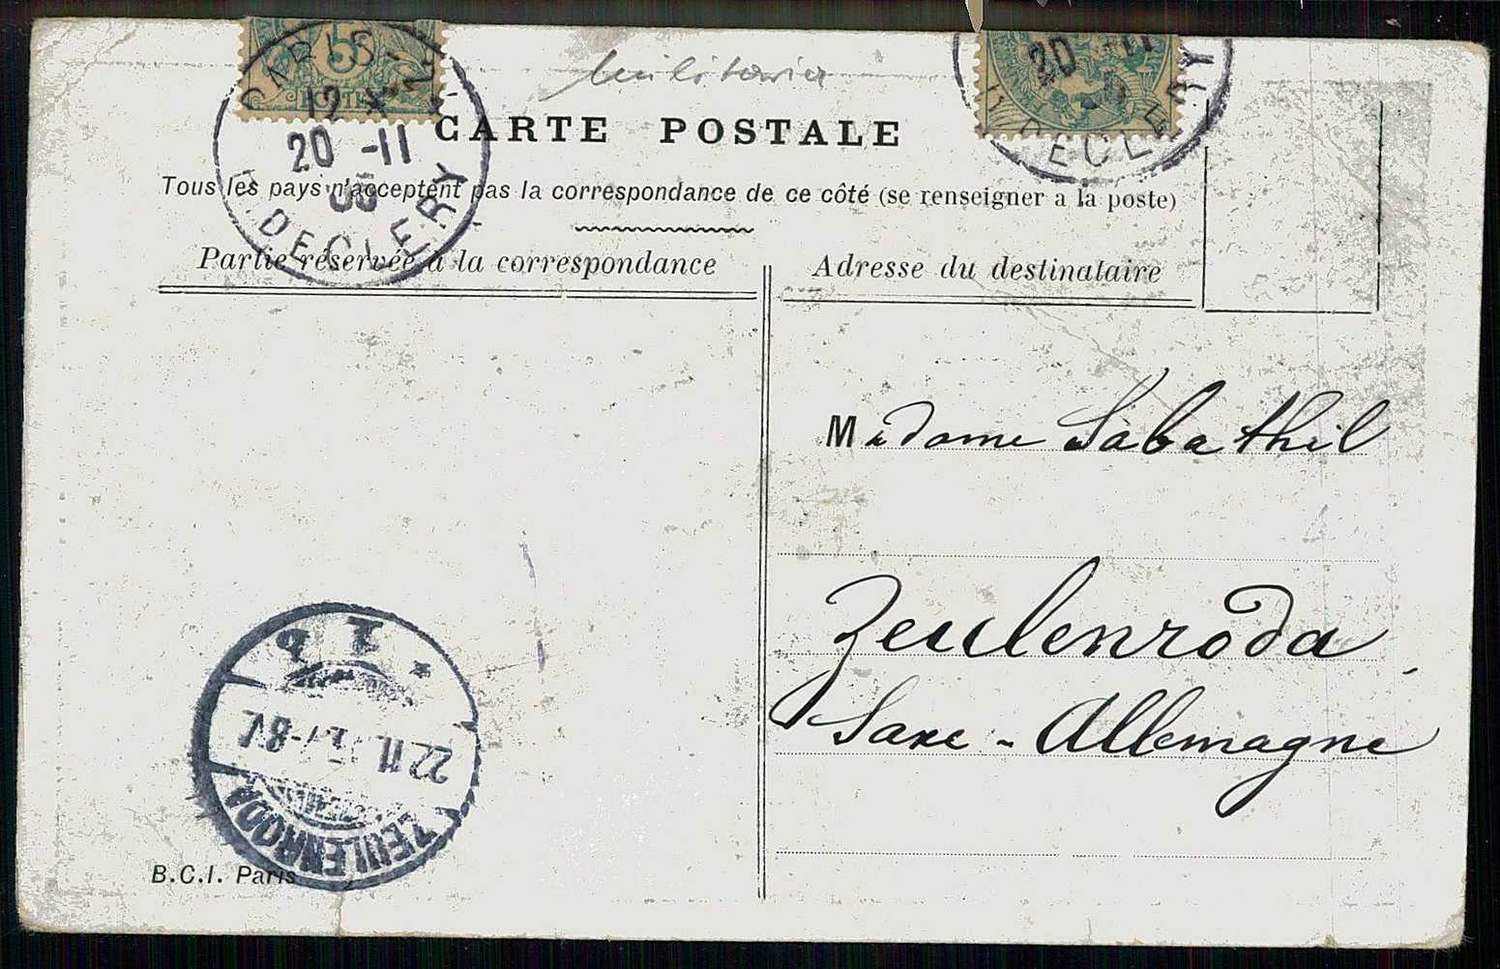 5
POSTES
PARIS
12
20 -11
R. DECLERY
militaria
20 -11
R. DECLERY
CARTE POSTALE
Tous les pays n'acceptent pas la correspondance de ce côté (se renseigner a la poste)
Partie réservée à la correspondance
Adresse du destinataire
Madame Sabathil
Zeulenroda
Saxe - Allemagne
ZEULENRODA
22.11.
7-8V.
B.C.I. Paris